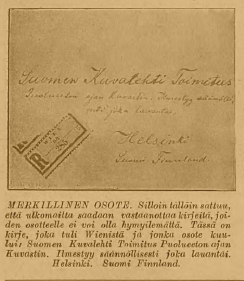 Suomen Kuvalehti Toimitus
Puolueeton ajan Kuvastin. Ilmestyy säännölli
sesti joka lauantai.
Helsinki
Suomi Finnland.
R
MERKILLINEN OSOTE. Silloin tällöin sattuu,
että ulkomailta saadaan vastaanottaa kirjeitä, joi-
den osotteelle ei voi olla hymyilemättä. Tässä on
kirje, joka tuli Wienistä ja jonka osote kuu-
luu: Suomen Kuvalehti Toimitus Puolueeton ajan
Kuvastin. Ilmestyy säännöllisesti joka lauantai.
Helsinki. Suomi Finnland.